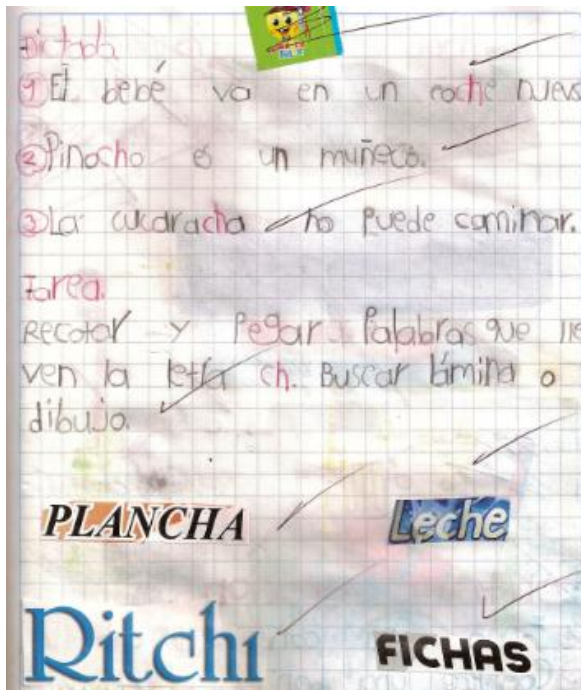 Dictado
① El bebé va en un coche nuevo
② Pinocho es un muñeco.
③ La cucaracha no puede caminar.
Tarea.
Recotar y Pegar Palabras que lle
ven la letra ch. Buscar lámina o
dibujo.
PLANCHA Leche
Ritchi FICHAS